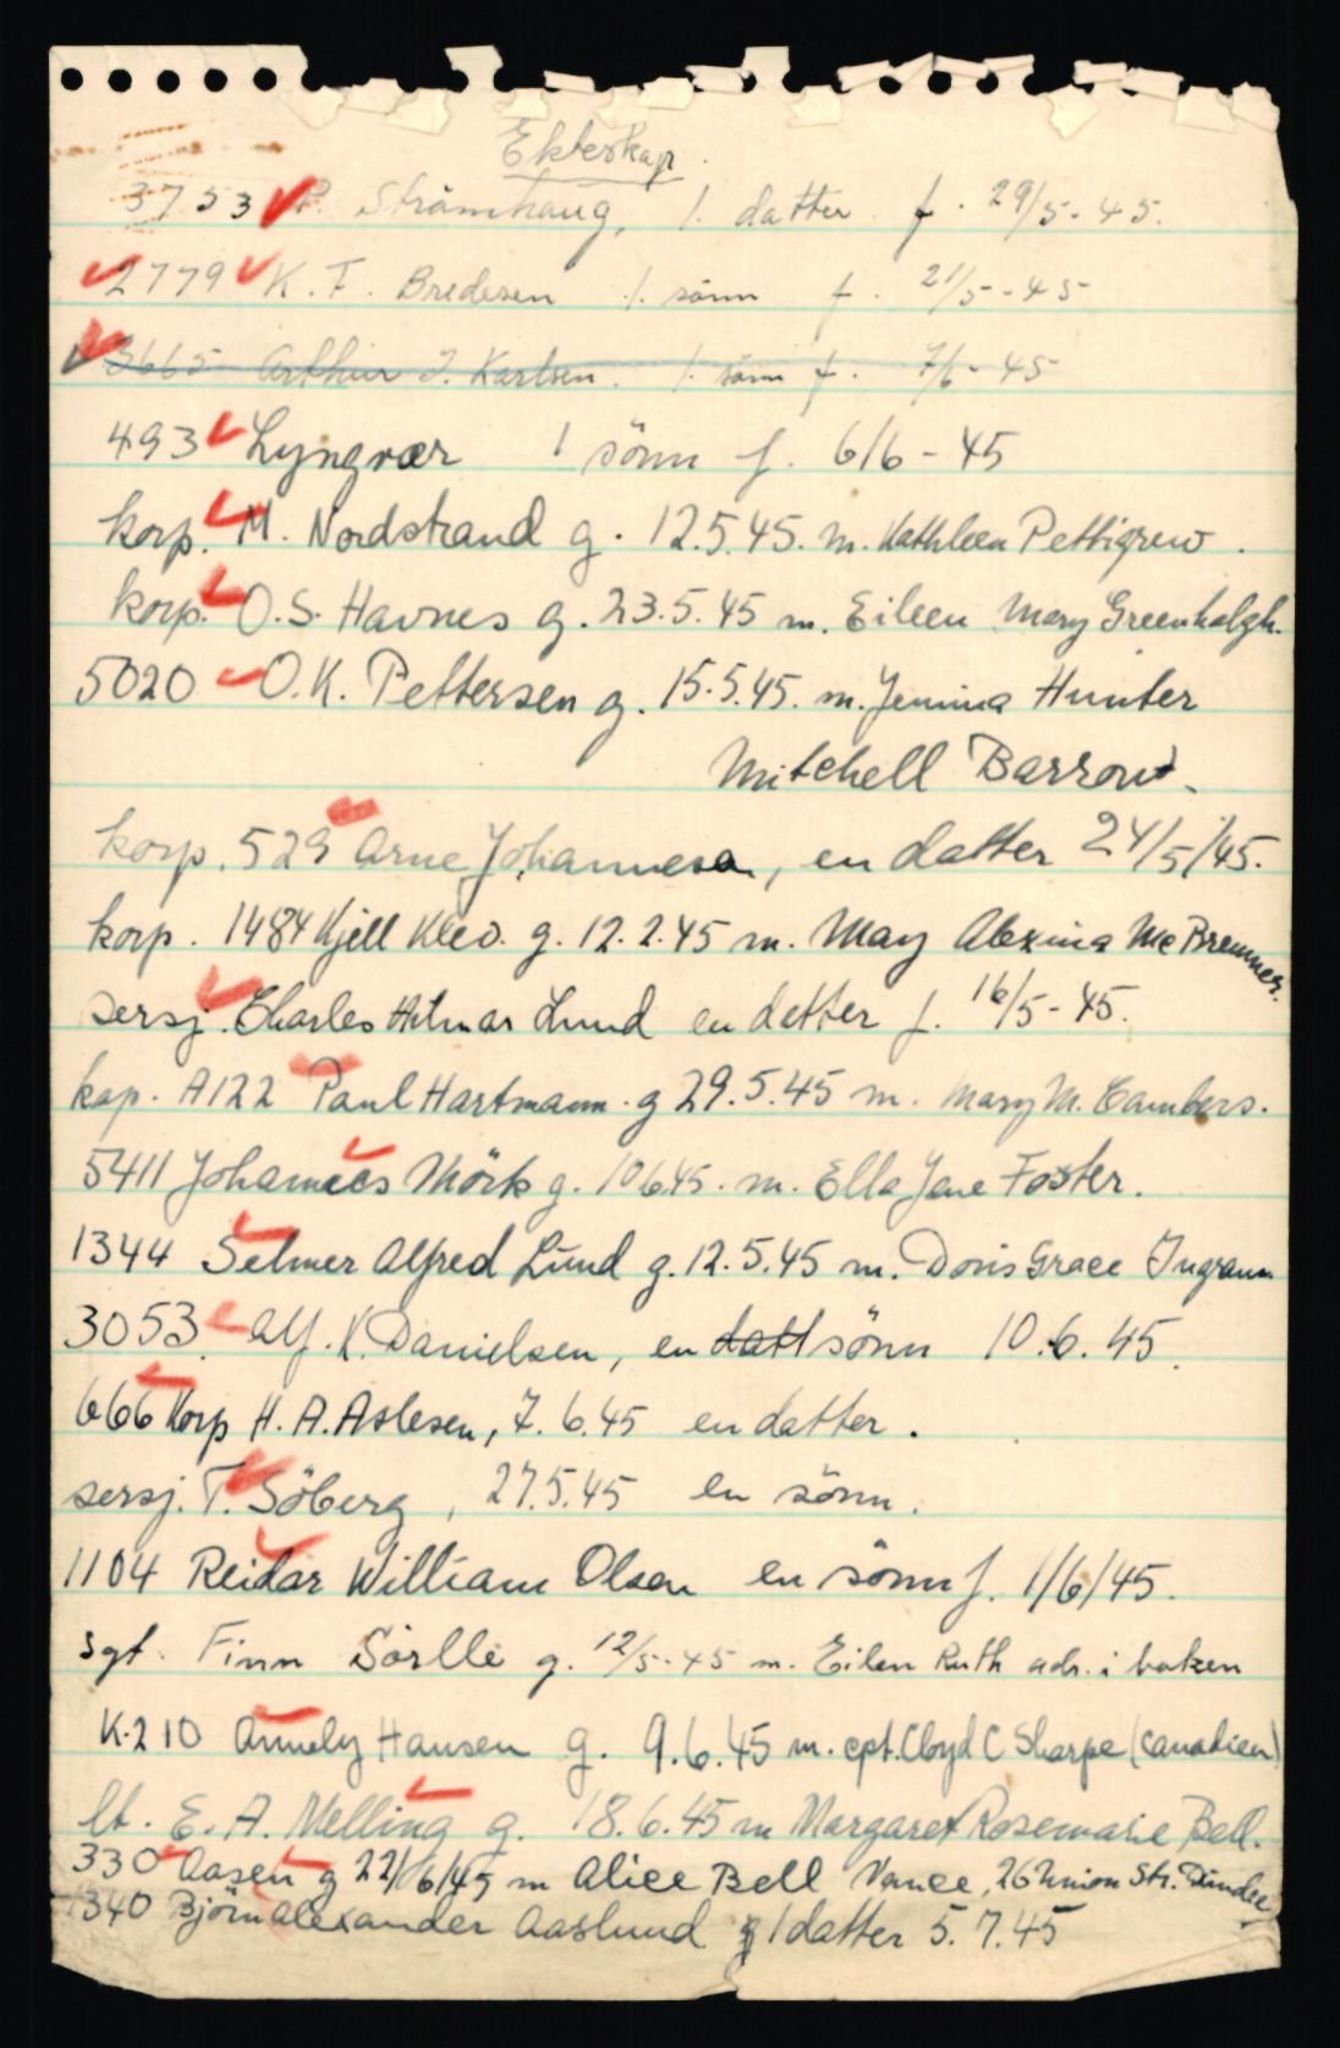 Ekteskap.
3753 P. Strömhaug, 1. datter f. 29/5-45.
2779 K. F. Bredesen 1. sönn f. 21/5-45
3665 Arthur J. Karlsen. 1. sönn f. 7/6-45
493 Lyngvær 1 sönn f. 6/6-45
korp. M. Nordstrand g. 12.5.45. m. Kathleen Pettigrew.
korp. O.S. Havnes g. 23.5.45 m. Eileen Mary Greenhalgh.
5020 O.K. Pettersen g. 15.5.45. m. Jemina Hunter
Mitchell Barrow.
korp. 529 Arne Johannesen, en datter 24/5/45.
korp. 1484 Kjell Klev. g. 12.2.45 m. May Alexina McBremner.
sersj. Charles Hilmar Lund en datter f. 16/5-45.
kap. A122 Paul Hartmann. g 29.5.45 m. Mary M. Cambers.
5411 Johannes Mörk g. 10.6.45. m. Ella Jane Foster.
1344 Selmer Alfred Lund g. 12.5.45 m. Doris Grace Ingram
3053. Alf. K. Danielsen, en datt sönn 10.6.45.
666 Korp H. A. Aslesen, 7.6.45 en datter.
sersj. T. Söberg, 27.5.45 en sönn.
1104 Reidar William Olsen en sönn f. 1/6/45.
sgt. Finn Sörlle g. 12/5-45 m. Eilen Ruth adr. i boken
K.210 Annely Hansen g. 9.6.45 m. cpt. Cloyd C Sharpe (Canadien)
lt. E. A. Melling g. 18.6.45 m Margaret Rosemarie Bell.
330 Aasen g 22/6/45 m Alice Bell Vance, 26 Union Str. Dundee
1340 Björn Alexander Aaslund g 1 datter 5.7.45